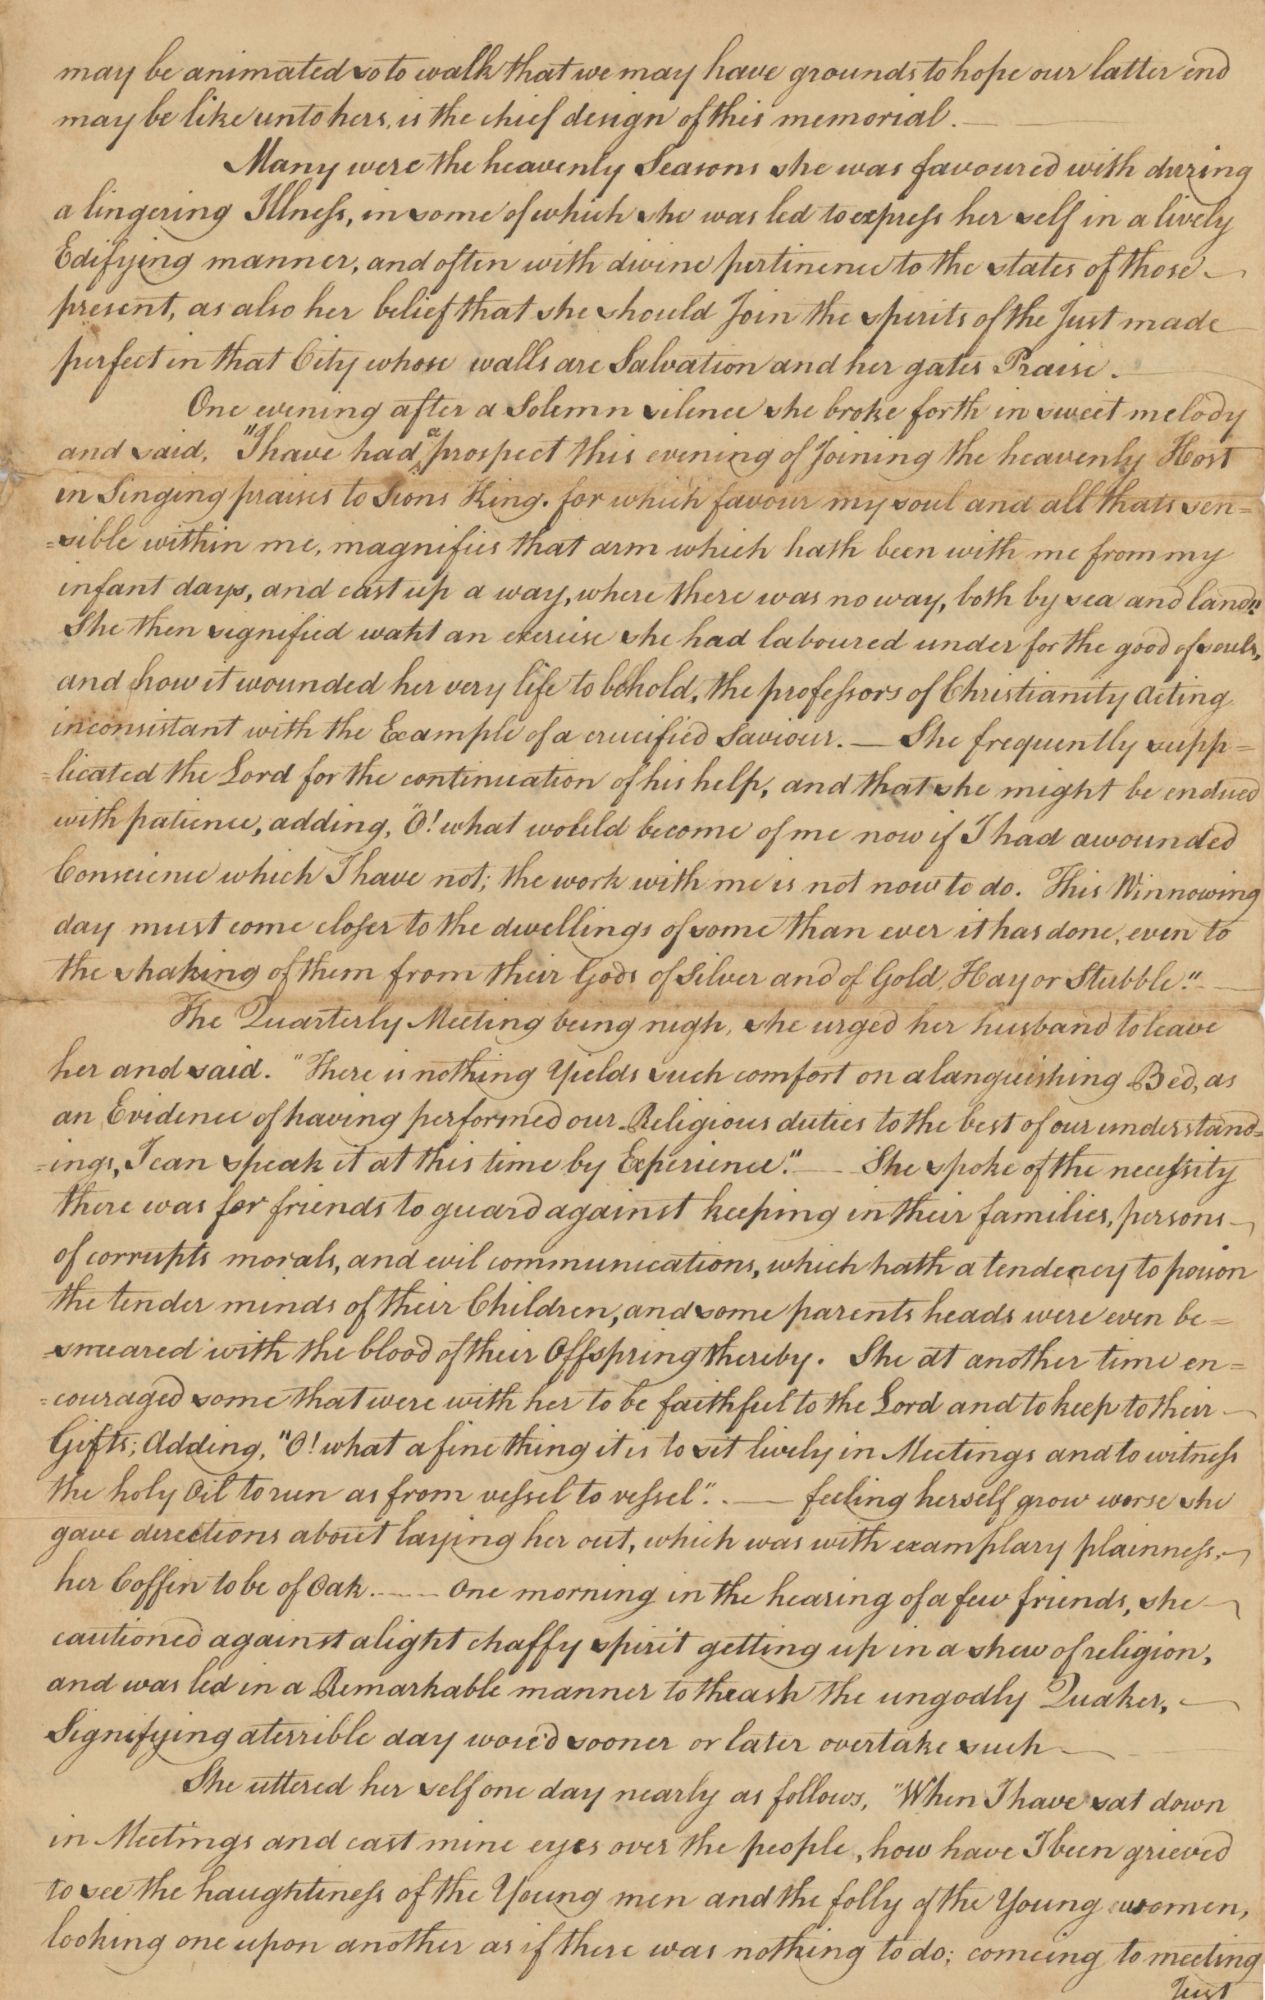 may be animated so to walk that we may have grounds to hope our latter end
may be like unto hers, is the chief design of this memorial. —
Many were the heavenly Seasons she was favoured with during
a lingering Illneſs, in some of which she was led to expreſs her self in a lively
Edifying manner, and often with divine pertinence to the states of those —
present, as also her belief that she should Join the spirits of the Just made
perfect in that City whose walls are Salvation and her gates Praise. —
One evening after a Solemn silence she broke forth in sweet melody
and said, "I have had a prospect this evening of Joining the heavenly Host
in Singing praises to Sions King. for which favour my soul and all thats sen=
=sible within me, magnifies that arm which hath been with me from my
infant days, and cast up a way, where there was no way, both by sea and land."
She then signified waht an exercise she had laboured under for the good of souls,
and how it wounded her very life to behold, the profeſsors of Christianity acting
inconsistant with the Example of a crucified Saviour. — She frequently supp=
=licated the Lord for the continuation of his help, and that she might be endued
with patience, adding, "O! what would become of me now if I had a wounded
Conscience which I have not; the work with me is not now to do. This Winnowing
day must come closer to the dwellings of some than ever it has done, even to
the shaking of them from their Gods of Silver and of Gold, Hay or Stubble." —
The Quarterly Meeting being nigh, she urged her husband to leave
her and said. "There is nothing Yields such comfort on a languishing Bed, as
an Evidence of having performed our Religious duties to the best of our understand=
=ings, I can speak it at this time by Experience." — She spoke of the neceſsity
there was for friends to guard against keeping in their families, persons —
of corrupts morals, and evil communications, which hath a tendency to poison
the tender minds of their Children, and some parents heads were even be=
=smeared with the blood of their Offspring thereby. She at another time en=
=couraged some that were with her to be faithful to the Lord and to keep to their —
Gifts; Adding, "O! what a fine thing it is to sit lively in Meetings and to witneſs
the holy Oil to run as from veſsel to veſsel". — feeling herself grow worse she
gave directions about laying her out, which was with examplary plainneſs, —
her Coffin to be of Oak. — One morning in the hearing of a few friends, she —
cautioned against a light chaffy spirit getting up in a shew of religion,
and was led in a Remarkable manner to thrash the ungodly Quaker, —
Signifying a terrible day wou'd sooner or later overtake such —
She uttered her self one day nearly as follows, "When I have sat down
in Meetings and cast mine eyes over the people, how have I been grieved
to see the haughtineſs of the Young men and the folly of the Young women,
looking one upon another as if there was nothing to do; comeing to meeting
Just